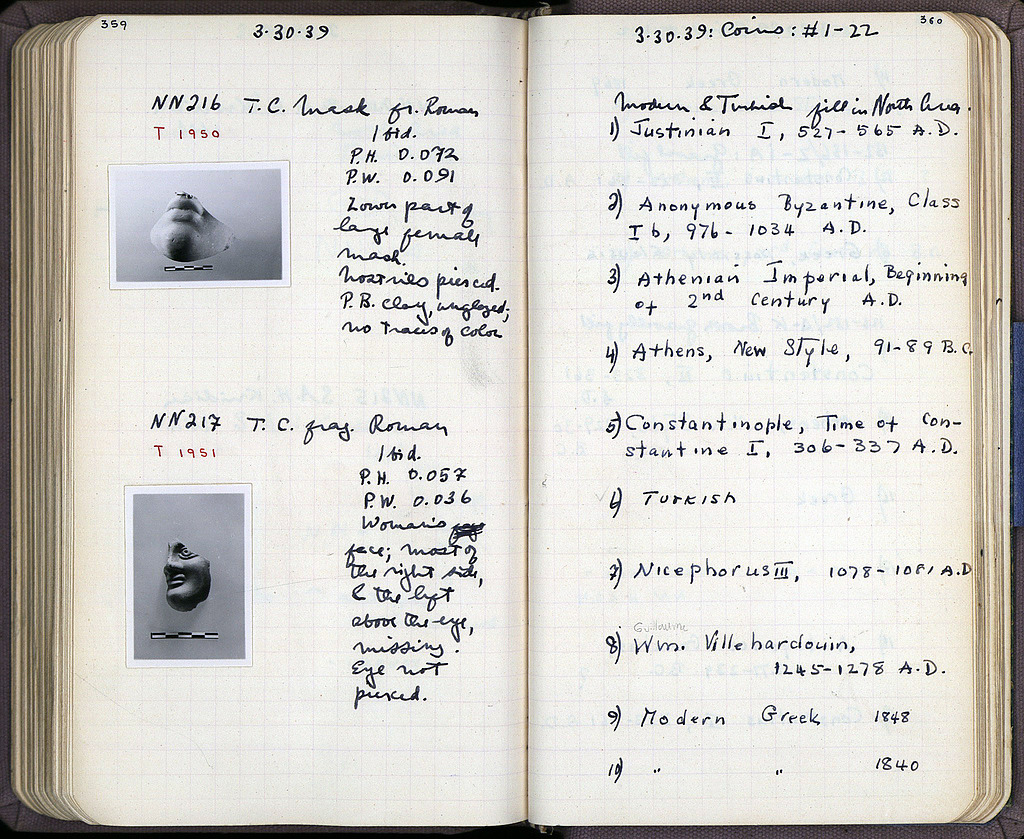 359
3-30-39
NN216 T.C. Mask fr. Roman
T 1950
Ibid.
P.H. 0.072
P.W. 0.091
Lower part of
large female
mask.
Nostrils pierced.
P.B. clay, unglazed;
no traces of color
NN217 T.C. frag. Roman
T 1951
Ibid.
P.H. 0.057
P.W. 0.036
Woman's
face; most of
the right side,
& the left
above the eye,
missing.
Eye not
pierced.
360
3-30-39: Coins: #1-22
Modern & Turkish fill in North Area.
1) Justinian I, 527-565 A.D.
2) Anonymous Byzantine, Class
I b, 976-1034 A.D.
3) Athenian Imperial, Beginning
of 2nd Century A.D.
4) Athens, New Style, 91-89 B.C.
5) Constantinople, Time of Con-
stantine I, 306-337 A.D.
6) Turkish
7) Nicephorus III, 1078-1081 A.D
Guillaume
8) Wm. Villehardouin,
1245-1278 A.D.
9) Modern Greek 1848
10) " " 1840